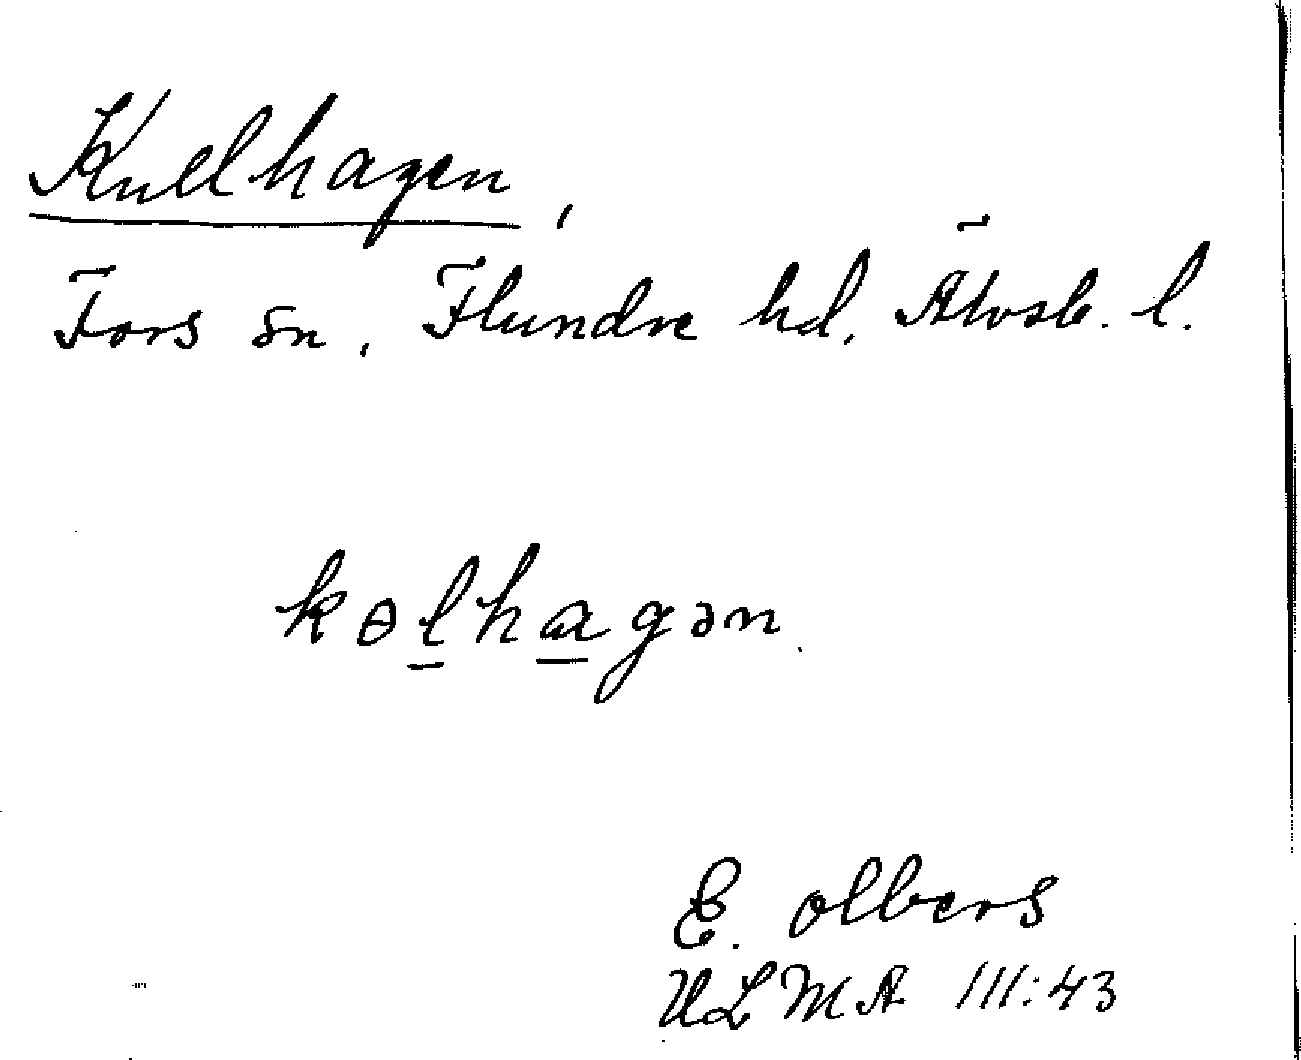 Kullhagen,
Fors sn, Flundre hd, Älvsb. l.
kɵlhagən.
E. Olbers
ULMA III:43